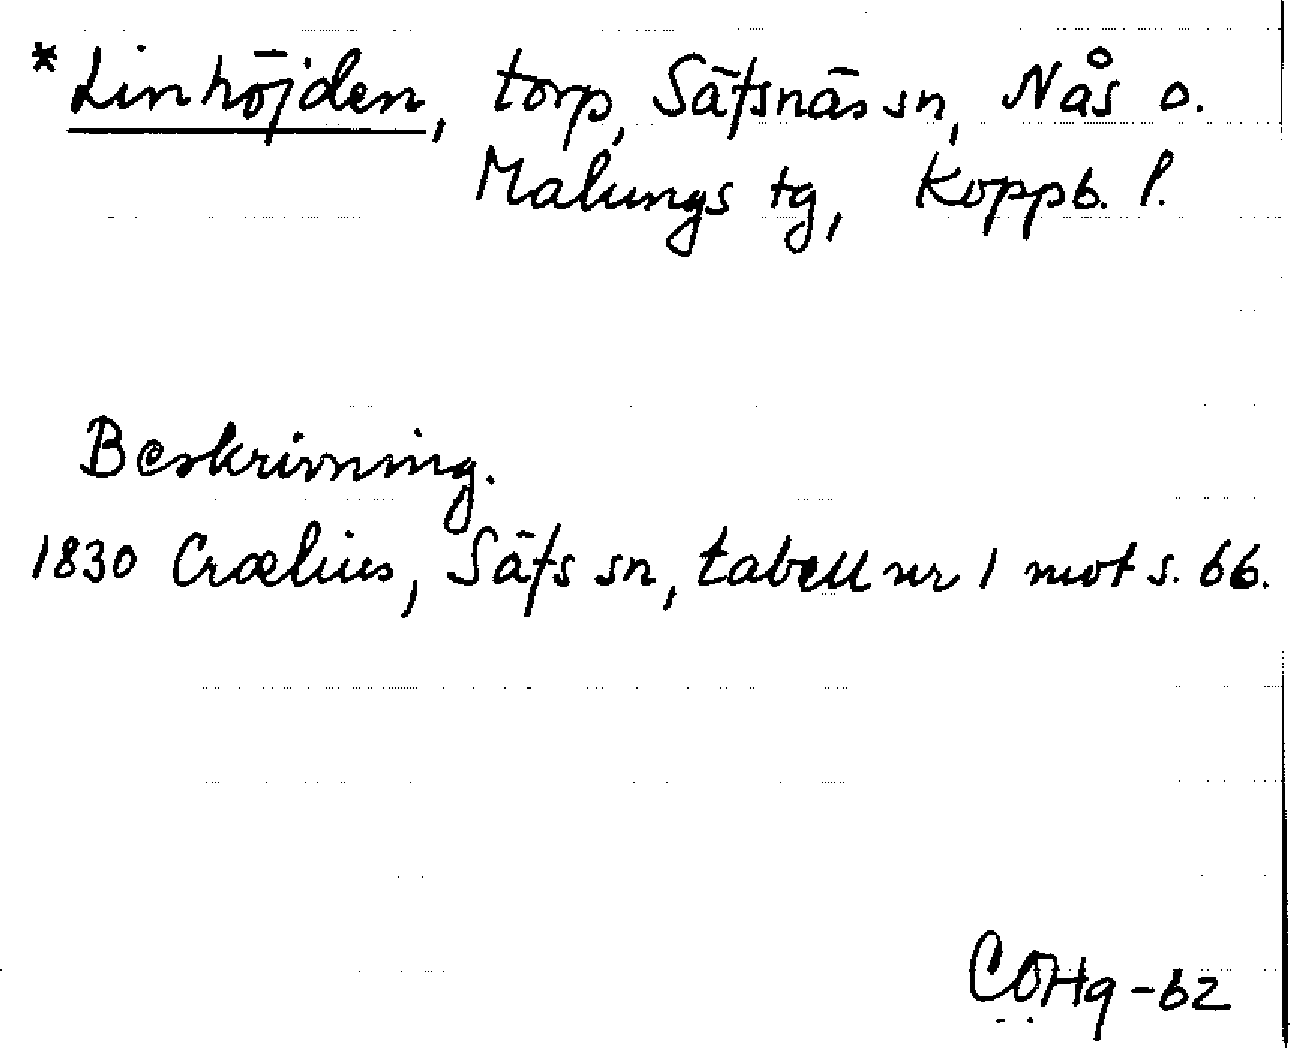 *Linhöjden, torp, Säfsnäs sn, Nås o.
Malungs tg, Koppb. l.
Beskrivning.
1830 Crælius, Säfs sn, tabell nr 1 mot s. 66.
COHg -62